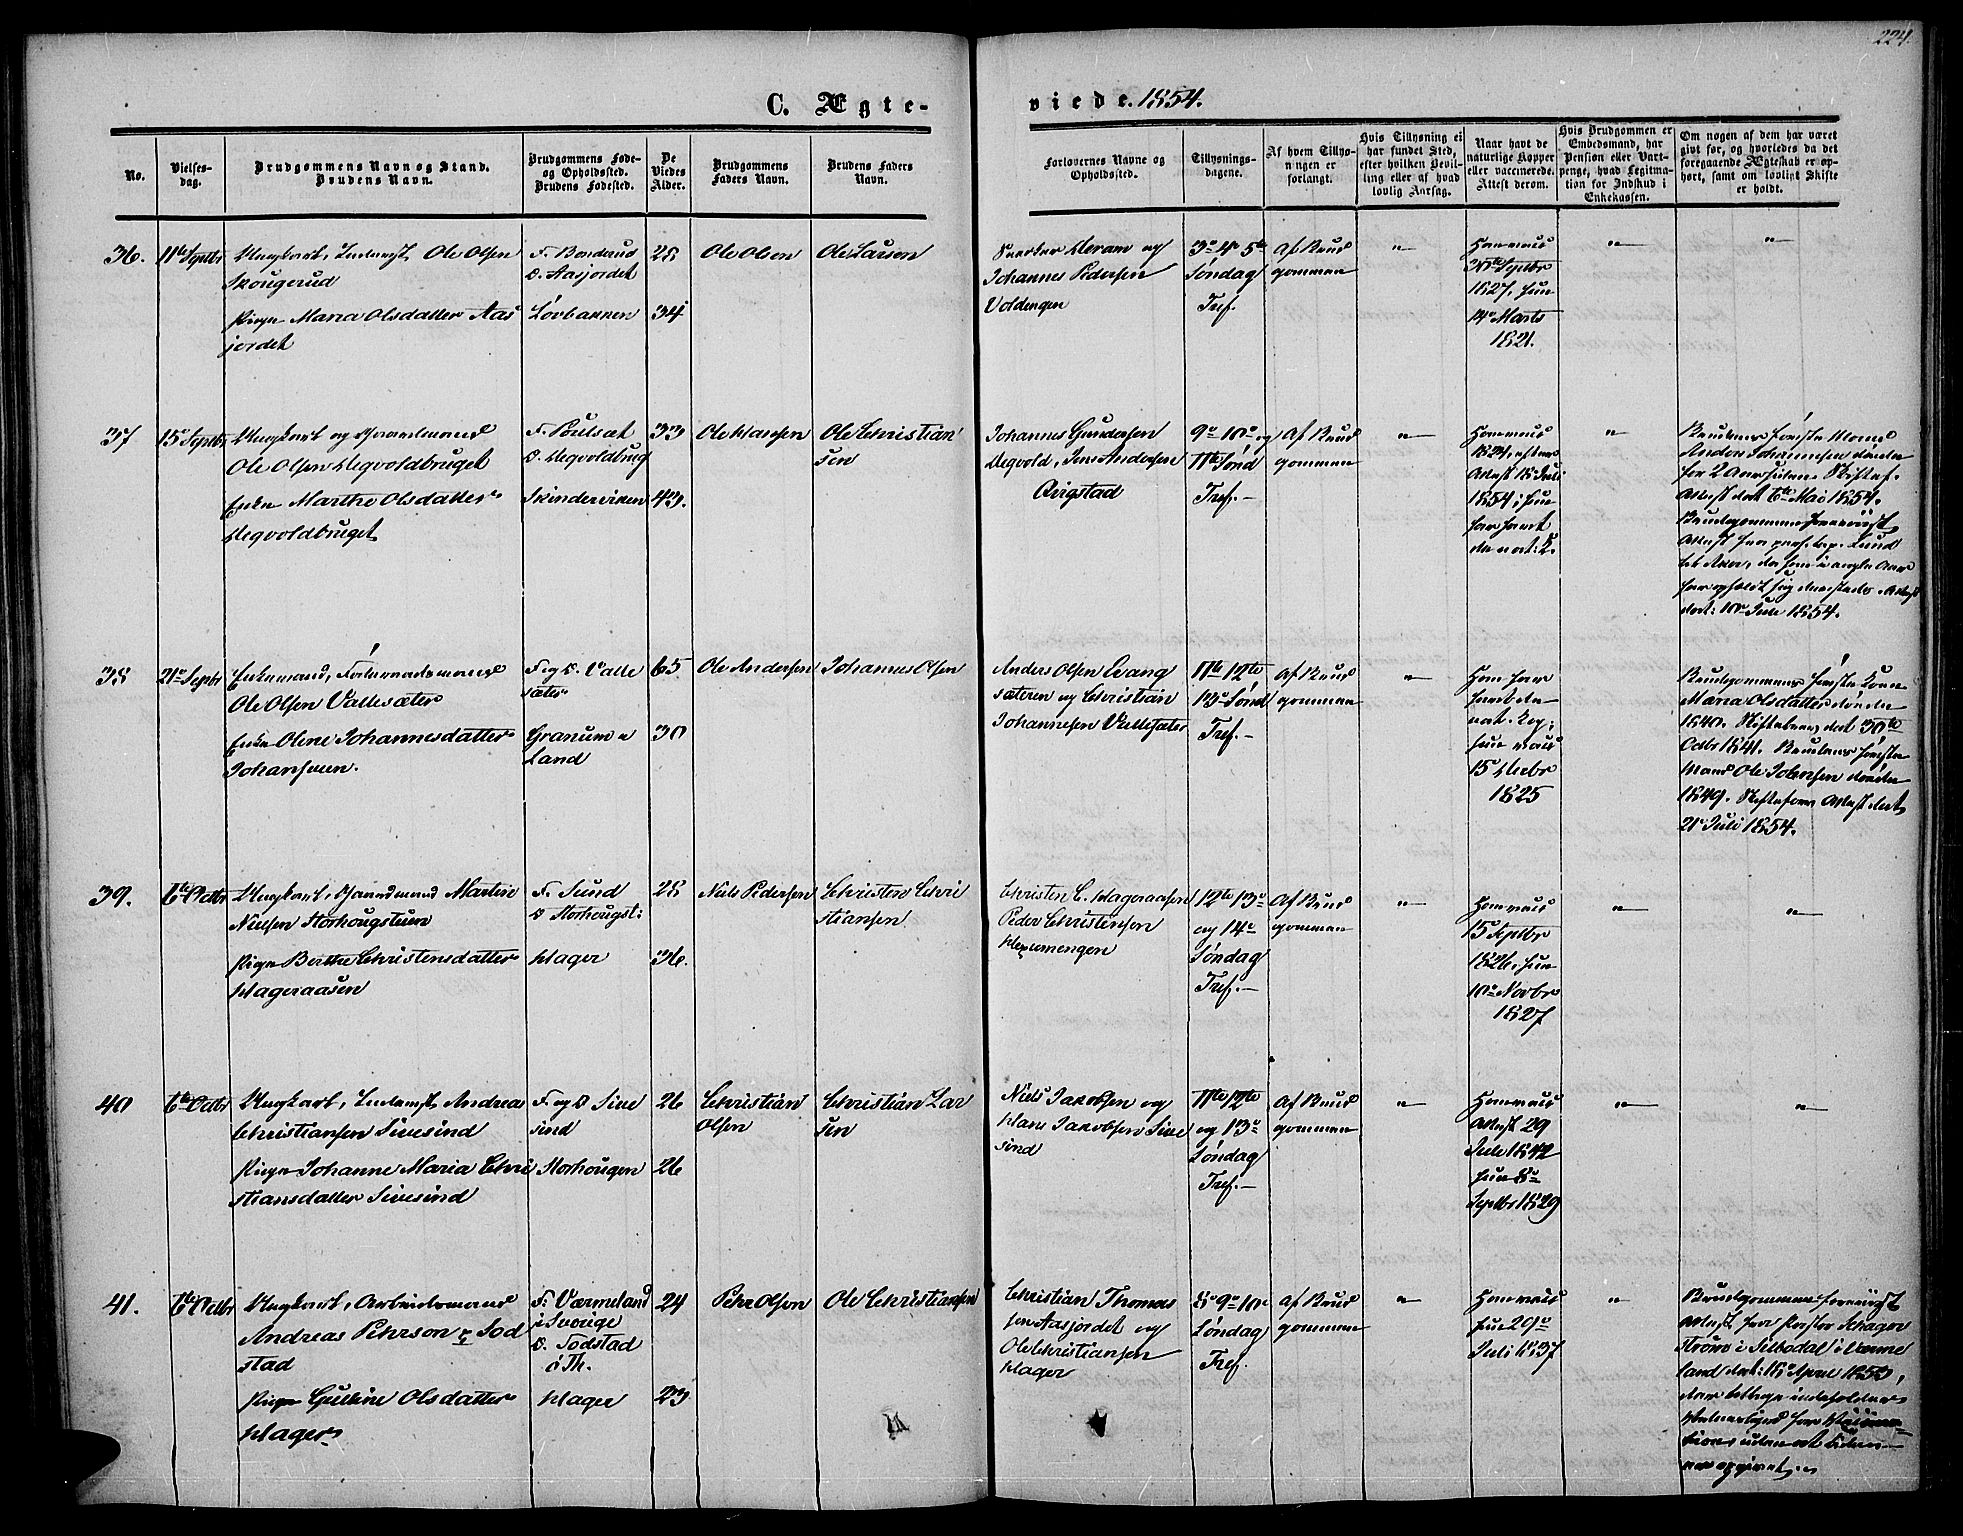 224.
C. Ægte-
viede. 1854.
No.
Vielses-
dag.
Brudgommens Navn og Stand.
Brudens Navn.
Brudgommens Føde-
og Opholdssted.
Brudens Fødested.
De
Viedes
Alder.
Brudgommens
Faders Navn.
Brudens Faders
Navn.
Forlovernes Navne og
Opholdssted.
Tillysnings-
dagene.
Af hvem Tillys-
ningen er
forlangt.
Hvis Tillysning ei
har fundet Sted,
efter hvilken Bevil-
ling eller af hvad
lovlig Aarsag.
Naar havt de
naturlige Kopper
eller vaccinerede.
Attest derom.
Hvis Brudgommen er
Embedsmand, har
Pension eller Vart-
penge, hvad Legitima-
tion for Indskud i
Enkekassen.
Om nogen af dem har været
givt før, og hvorledes da det
foregaaende Ægteskab er op-
hørt, samt om lovligt Skifte
er holdt.
36.
11te Septbr
Ungkarl, Inderst, Ole Olsen
Skougerud
Pige Maria Olsdatter Aas
jordet
F. Borderud
O. Aasjordet
Løvbakken
28
34
Ole Olsen
Ole Larsen
Meram og
Johannes Pedersen
Voldengen
3e 4e 5te
Søndag
Tref.
Af Brud
gommen
"
Ham vac.
Septbr
1827, hun
14e Marts
1821.
"
"
37
15e Septbr
Ungkarl og Gaardmand
Ole Olsen Hegvoldbruget
Enke Marthe Olsdatter
Hegvoldbruget
F. Poulsæt
O. Hegvoldbrug
Skinderviken
33
49.
Ole Hansen
Ole Christian
sen
Johannes Gundersen
Hegvold, Jens Andersen
Ringstad
9e 10e og
11te Sønd
Tref.
Af Brud
gommen
"
Ham vac.
1824, efter
Attest 18 Juli
1854; hun
har havt
de nat: K.
"
Brudens første Mand
Anders Johannesen døde
for 2 Aar siden. Skiftef.
Attest dat 6te Mai 1854.
Brudgommen foreviist
Attest fra pers. kap. Lund
til Aker, da han i nogle Aar
har opholdt sig dersteds. Attest
dat: 10e Juli 1854.
38
21e Septbr
Enkemand, Føderaadsmand
Ole Olsen Vallesæter
Enke Olene Johannesdatter
Johansveen.
F. og O. Valle
sæter
Granum i
Land
65
30
Ole Andersen
Johannes Olsen
Anders Olsen Evang
sæteren og Christian
Johannesen Vallesæter
11te 12te
13e Sønd
Tref.
Af Brud
gommen
"
Ham har
havt de
nat. Kop;
hun vac.
15 Decbr
1825
Brudgommens første Kone
Maria Olsdatter døde
1840. Skiftebrev dat 30te
Octbr 1841. Brudens første
Mand Ole Johnsen døde
1849. Skifteforv. Attest dat
21e Juli 1854.
39.
6te Octbr
Ungkarl, Gaardmand Martin
Nielsen Storhougstuen
Pige Berthe Christensdatter
Hageraasen
F. Sund
O Storhougst:
Hager
28
36.
Niels Pedersen
Christen Chri
stiansen
Christen C. Hageraasen
Peder Christensen
Hexumengen
12te 13e
og 14e
Søndag
Tref.
Af Brud
gommen
"
Ham vac.
15 Septbr
1826, hun
10e Novbr
1827
"
"
40
6te Octbr
Ungkarl, Inderst, Andreas
Christiansen Sivesind
Pige Johanne Maria Chri
stiansdatter Sivesind
F. og O Sive
sind
Storhougen
26
26
Christian
Olsen
Christian Lar
sen
Niels Jakobsen og
Hans Jakobsen Sive
sind
11te 12te
og 13e
Søndag
Tref.
Af Brud
gommen
"
Ham vac.
Attest 29
Juli 1842
hun 8e
Septbr 1829
"
"
41.
6te Octbr
Ungkarl, Arbeidsmand
Andreas Pehrson Tod
stad
Pige Gulline Olsdatter
Hager
F: Værmeland
i Sverige
O. Todstad
i Th.
Hager
24
23
Pehr Olsen
Ole Christiansen
Christian Thomas
sen Aasjordet og
Ole Christiansen
Hager
8e 9e 10e
Søndag
Tref.
Af Brud
gommen
"
Ham vac.
hun 29e
Juli 1837
"
Brudgommen foreviist
Attest fra Pastor Schager
Strøm i Silbodal i Værme
land dat: 18e April 1853,